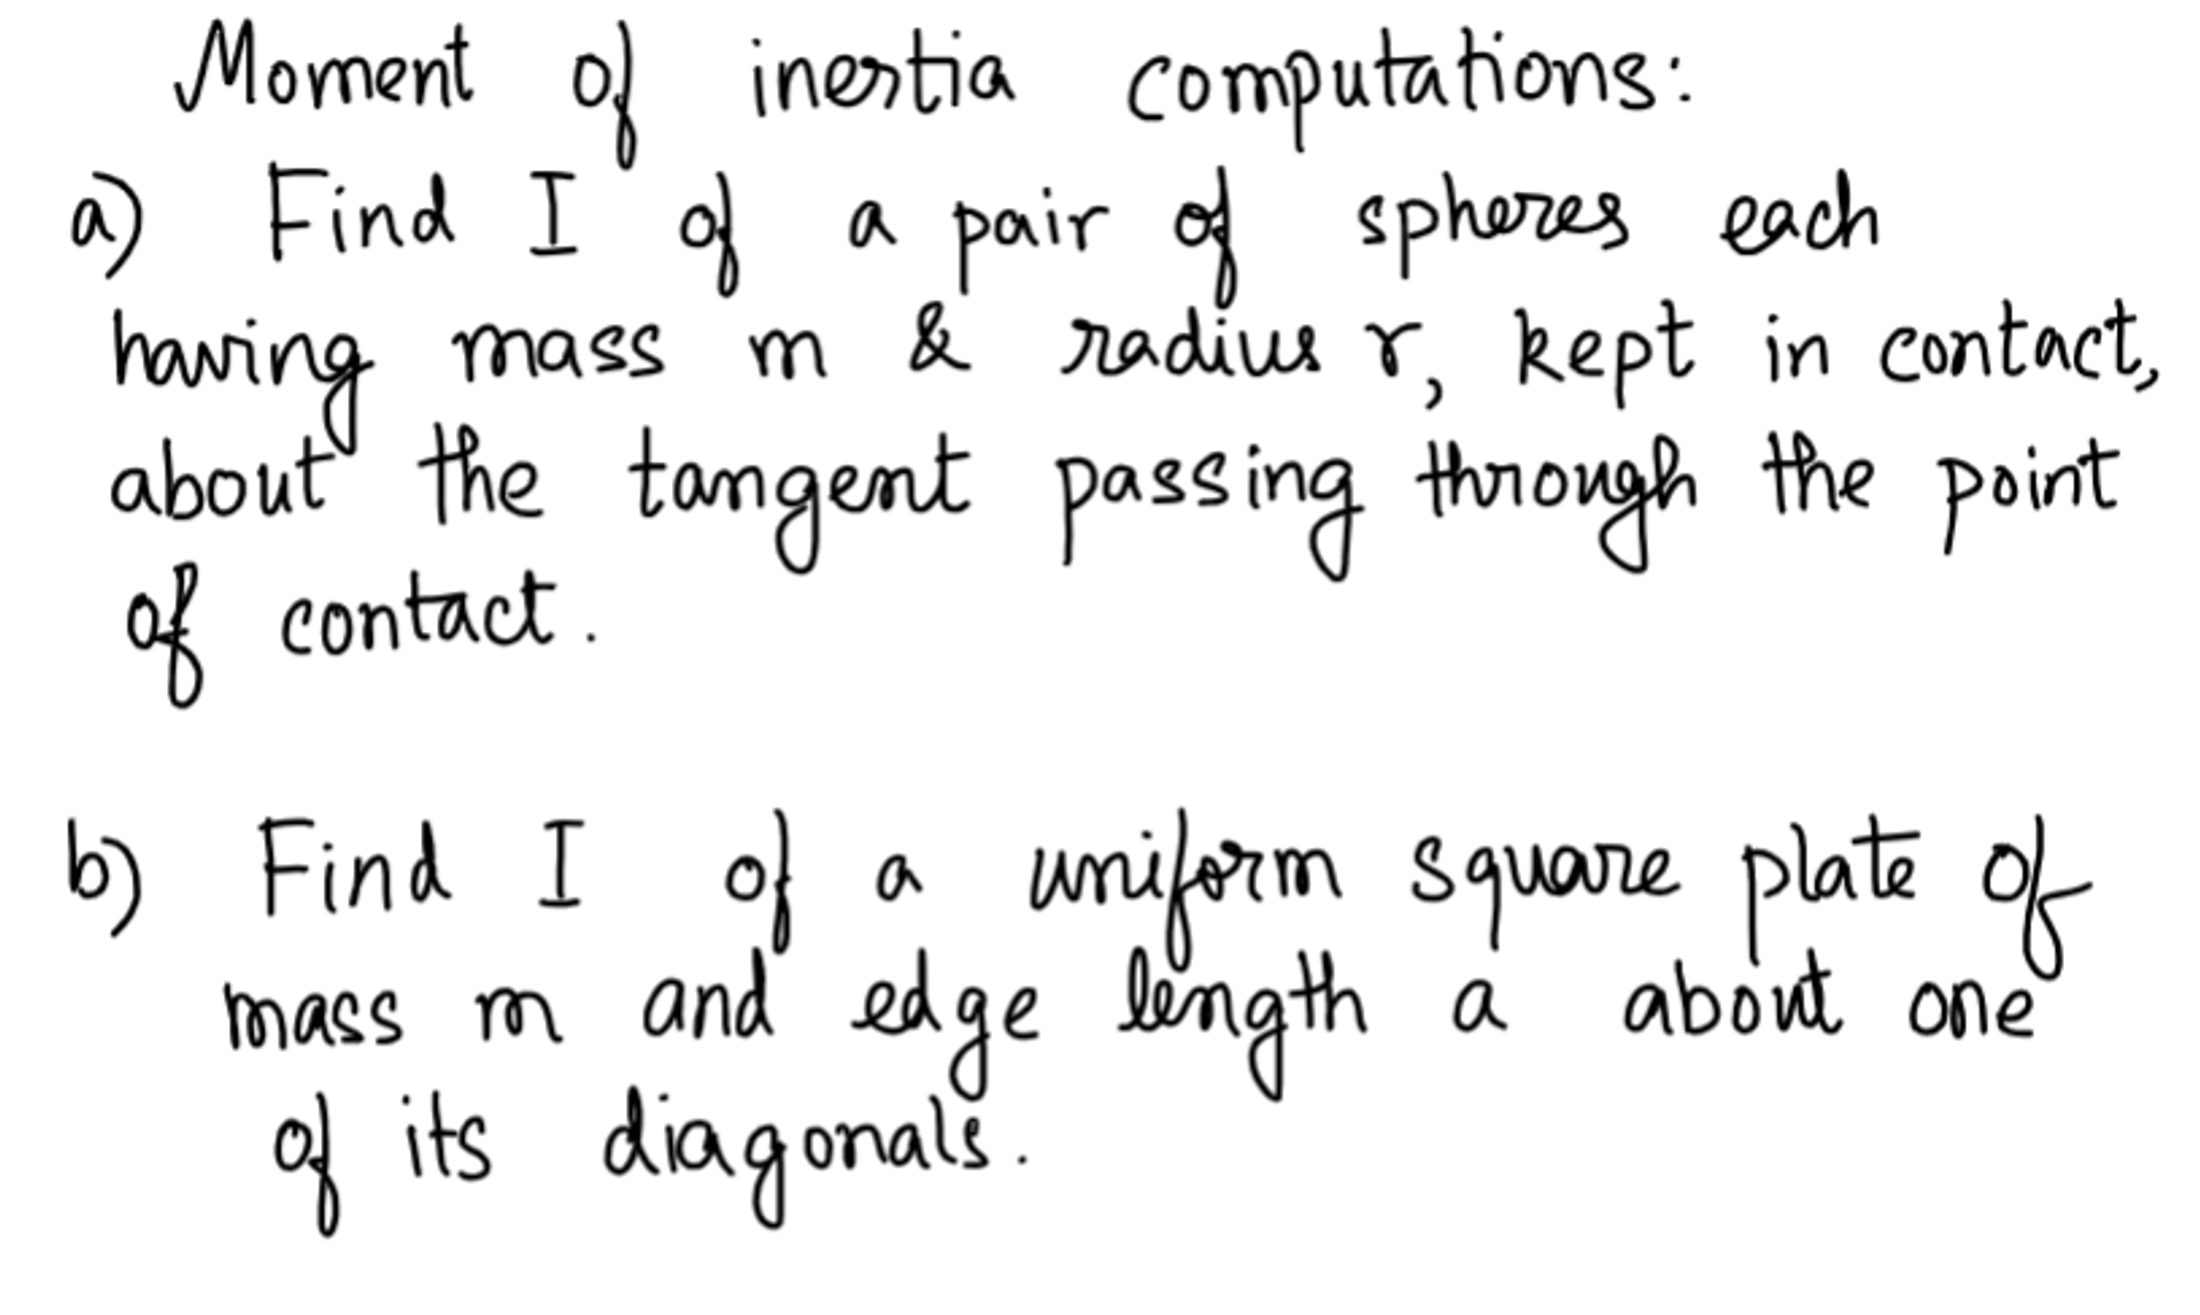 Moment of inertia computations:
a) Find I of a pair of spheres each
having mass m & radius r, kept in contact,
about the tangent passing through the point
of contact.
b) Find I of a uniform square plate of
mass m and edge length a about one
of its diagonals.